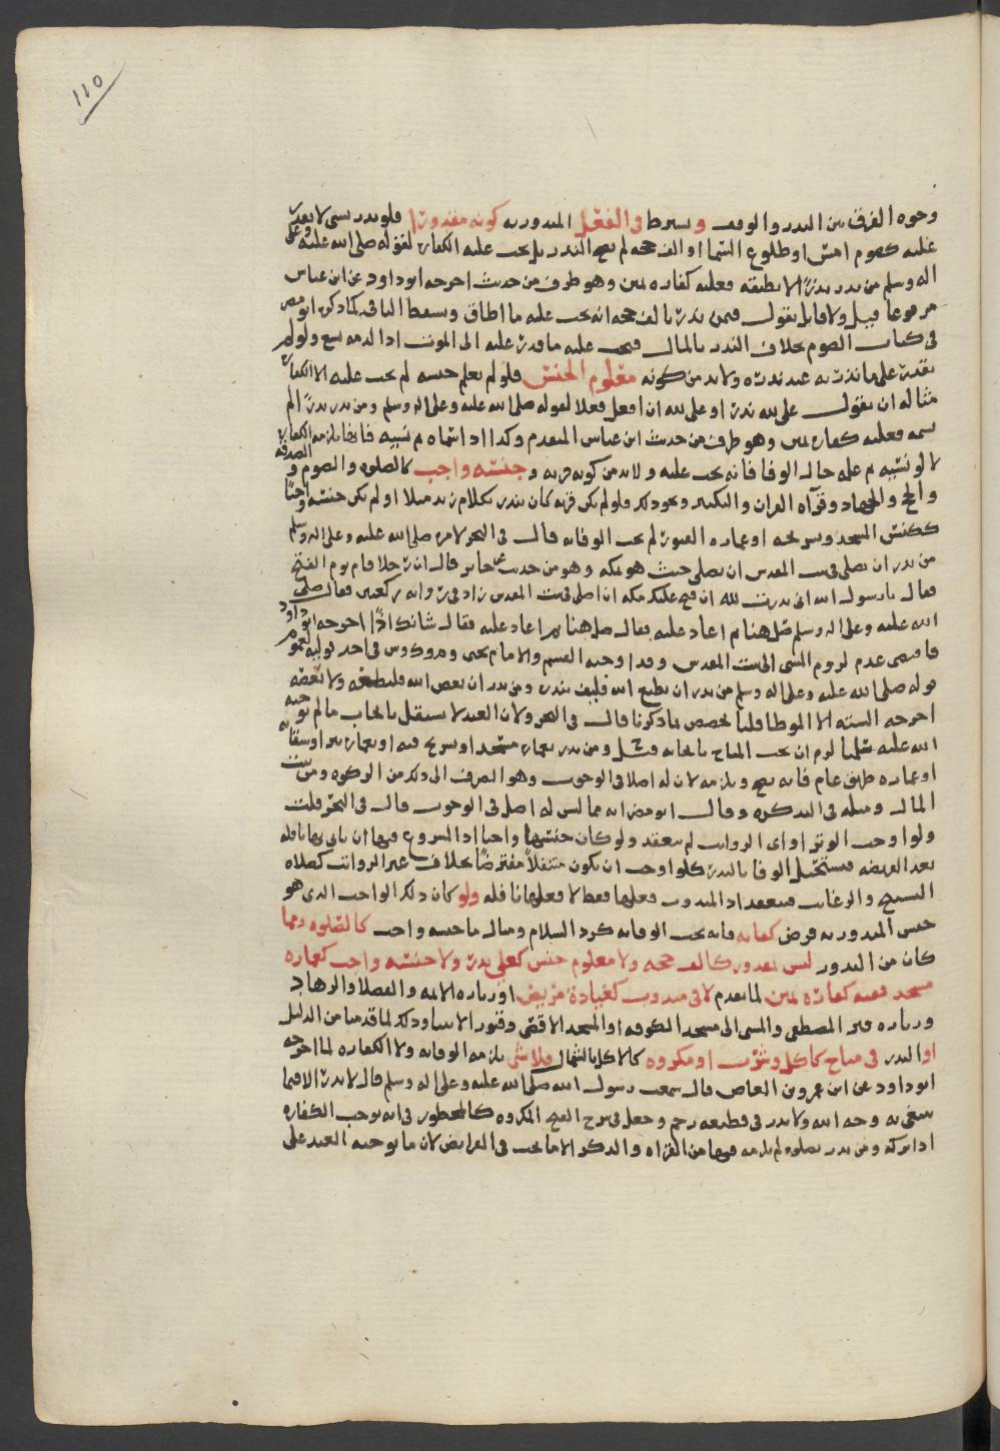 ١١٥
وجوه الفرق بين النذر والوقف ويشترط في الفعل المنذور به كونه مقدورا فلو نذر بشي لا يقدر
عليه كصوم امس او طلوع السما او الف حجه لم يصح النذر بل يجب عليه الكفاره لقوله صلى الله عليه وعلى
اله وسلم من نذر نذرا لا يطيقه فعليه كفاره يمين وهو طرف من حديث اخرجه ابو داود عن ابن عباس
مرفوعا قيل ولا قايل يقول فيمن نذر بالف حجه انه يجب عليه ما اطاق ويسقط الباقي كما ذكره ابو مضر
في كتاب الصوم بخلاف النذر بالمال فيجب عليه ما قدر عليه الى الموت اذ الذمه تسع ولو لم
يقدر على ما نذر به عند نذره ولا بد من كونه معلوم الجنس فلو لم يعلم جنسه لم يجب عليه الا الكفاره
مثاله ان يقول على لله نذر او على لله ان افعل فعلا لقوله صلى الله عليه وعلى اله وسلم ومن نذر نذرا لم
يسمه فعليه كفاره يمين وهو طرف من حديث ابن عباس المتقدم وكذا اذا سماه ثم نسيه فانها تلزمه الكفاره
لا لو نسيه ثم علمه حال الوفا فانه يجب عليه ولا بد من كونه قربه وجنسه واجب كالصلوه والصوم والصدقه
والحج والجهاد وقراه القران والتكبير ونحو ذلك فلو لم يكن قربه كان ينذر بكلام زيد مثلا او لم يكن جنسه واجبا
ككنس المسجد وتسريجه او عماره القبور لم يجب الوفا به قال في البحر لامره صلى الله عليه وعلى اله وسلم
من نذر ان يصلي في بيت المقدس ان يصلي حيث هو بمكه وهو من حديث عن جابر قال ان رجلا قام يوم الفتح
فقال يا رسول الله اني نذرت لله ان فتح عليك مكه ان اصلي في بيت المقدس زاد في روايه ركعتين فقال صلى
الله عليه وعلى اله وسلم صل هنا ثم اعاد عليه فقال صل هنا ثم اعاد عليه فقال شانك اذا اخرجه ابو داود
فاقتضى عدم لزوم المشي الى بيت المقدس وقد اوجبه القسم والامام يحيى في احد قوليه لعموم
قوله صلى الله عليه وعلى اله وسلم من نذر ان يطيع الله فليف بنذره ومن نذر ان يعصي الله فليطعه ولا يعصه
اخرجه السته الا الموطا قلنا مخصص بما ذكرنا قال في البحر ولان العبد لا يستقل بايجاب ما لم يوجبه
الله عليه سلمنا لزم ان يجب المباح بايجابه قيل ومن نذر بعماره مسجد او تسريج فيه او بعماره بير او سقايه
او عماره طريق عام فانه يصح ويلزمه لان له اصلا في الوجوب وهو الصرف الى ذلك من الزكوه ومن بيت
المال ومثله في التذكره وقال ابو مضر انه مما ليس له اصل في الوجوب قال في البحر قلت
ولو اوجب الوتر او اي الرواتب لم ينعقد ولو كان جنسها واجبا اذ المشروع فيها ان ياتي بها نافله
بعد الفريضه فيستحيل الوفا بالنذر كلو اوجب ان يكون متنفلا مفترضا بخلاف غير الرواتب كصلاه
التسبيح والرغايب فينعقد اذ المندوب فعلها فقط لا فعلها نافله ولو كان ذلك الواجب الذي هو
جنس المنذور به فرض كفايه فانه يجب الوفا به كرد السلام ومثال ما جنسه واجب كالصلوه وما
كان من النذور ليس بمقدور كالف حجه ولا معلوم جنس كعلي نذر ولا جنسه واجب كعماره
مسجد ففيه كفاره يمين لما تقدم لا في مندوب كعياده مريض او زياره الايمه والفضلا والزهاد
وزياره قبر المصطفى والمشي الى مسجد الكوفه او المسجد الاقصى وقبور الانبيا وذلك لما قدمنا من الدليل
او النذر في مباح كاكل وشرب او مكروه كالاكل بالشمال فلا شي يلزمه الوفا به ولا الكفاره لما اخرجه
ابو داود عن ابن عمرو بن العاص قال سمعت رسول الله صلى الله عليه وعلى اله وسلم قال لا نذر الا فيما
يبتغي به وجه الله ولا نذر في قطيعه رحم وجعل في شرح الفتح المكروه كالمحظور في انه يوجب الكفاره
اذا تركه ومن نذر بصلوه لم يلزمه فيها من القراه والذكر الا ما يجب في الفرايض لان ما يوجبه العبد على